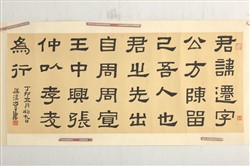 君諱遷字
公方陳留
己吾人也
君之先出
自周周宣
王中興張
仲以孝友
為行